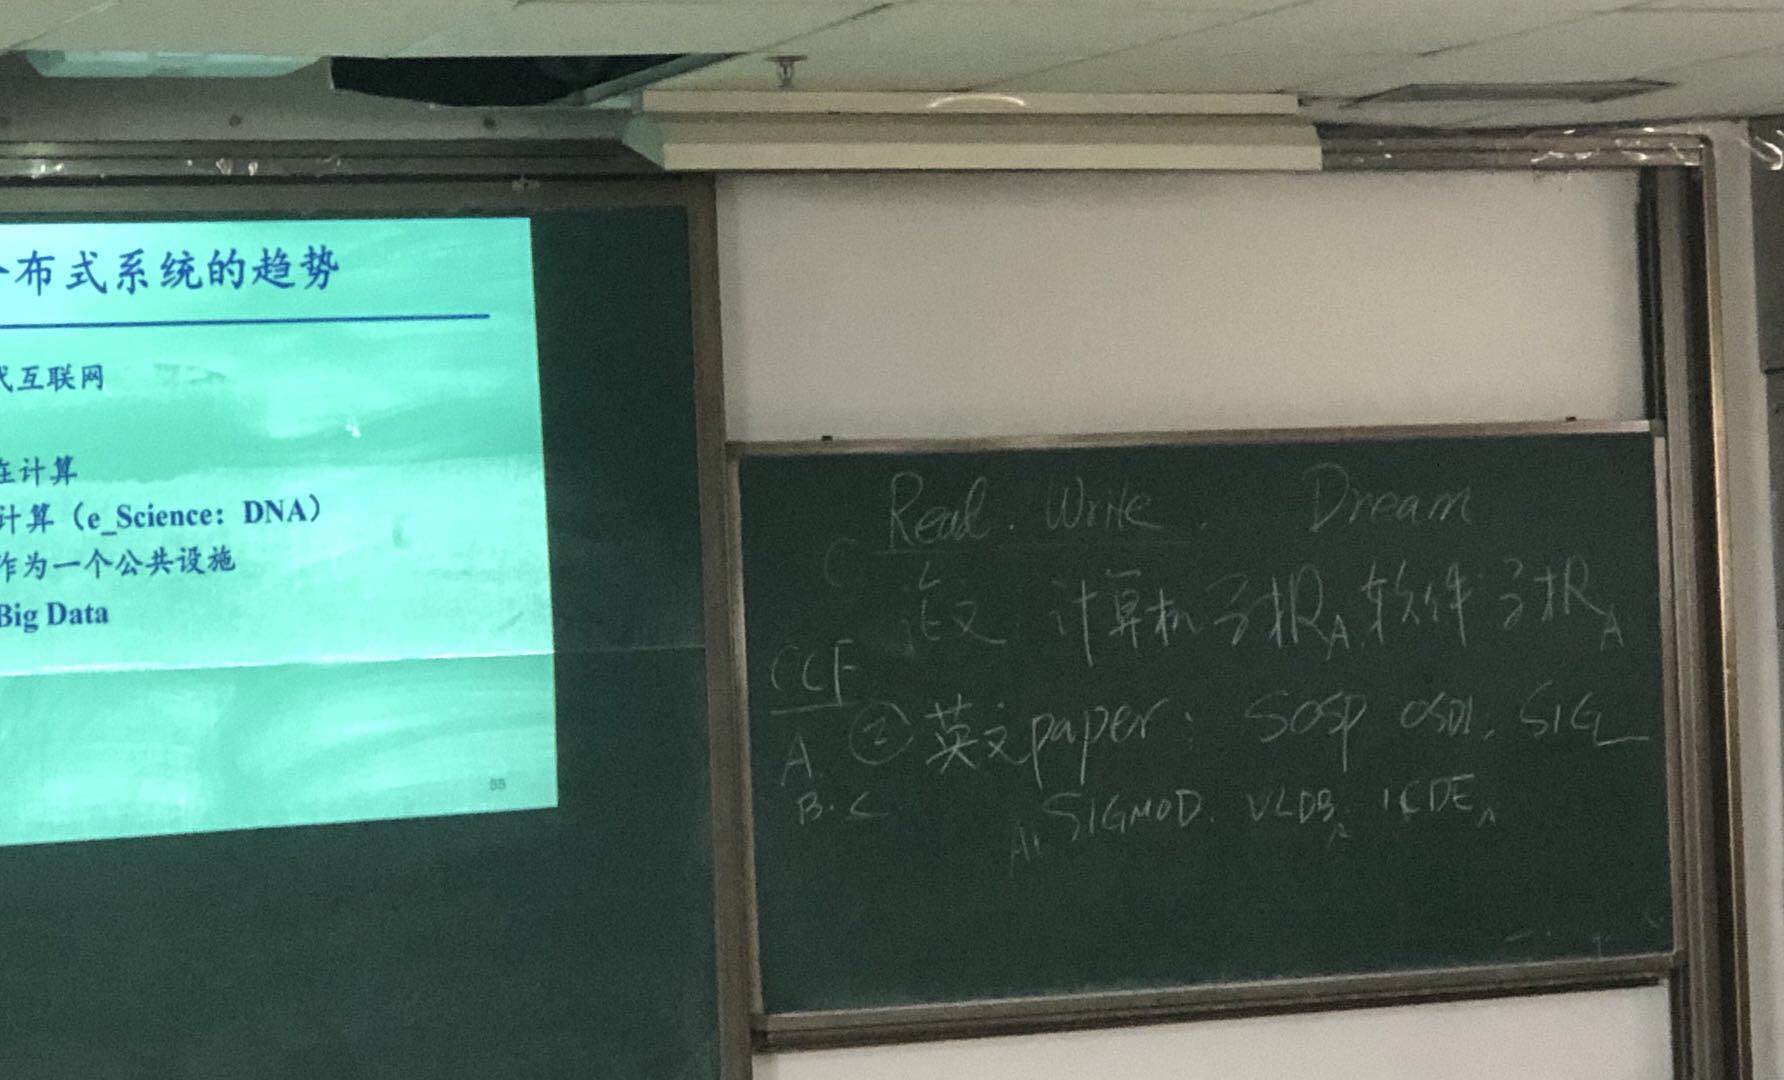 布式系统的趋势
互联网
计算
计算（e_Science：DNA）
作为一个公共设施
Big Data
Read . Write . Dream
C
论文 计算机学报A 软件学报A
CCF
A ② 英文paper: SOSP OSDI, SIG
B. C
A: SIGMOD. VLDB A ICDE A